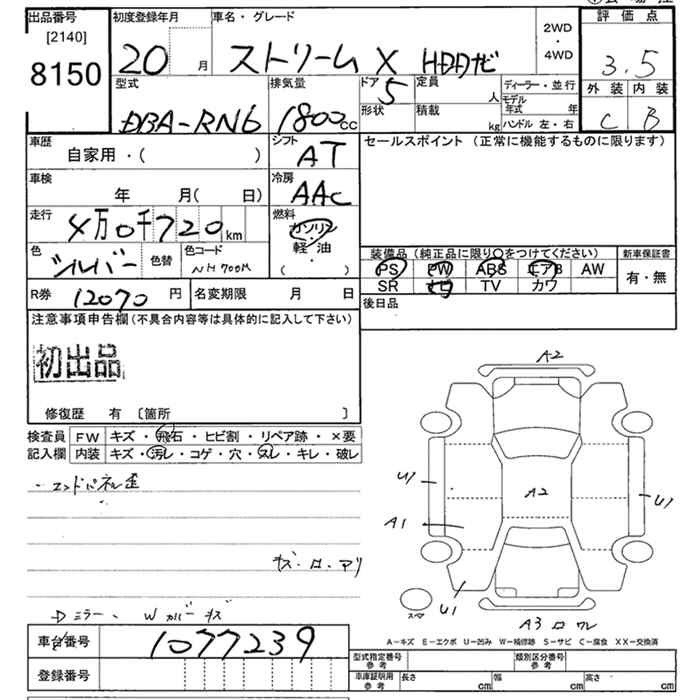 出品番号 初度登録年月 車名・グレード 2WD・4WD 評価点
[2140]
8150 20 月 ストリーム X HDDナビ 3.5
型式 排気量 ドア 定員 ディーラー・並行 外装 内装
DBA-RN6 1800 cc 5 人 モデル年式 年 C B
形状 積載 kg ハンドル 左・右
車歴 シフト セールスポイント (正常に機能するものに限ります)
自家用・( ) AT
車検 冷房
年 月( 日) AAC
走行 燃料
4万0千720 km ガソリン
軽・油
( )
色 色替 色コード 装備品 (純正品に限り○をつけてください) 新車保証書
シルバー NH700M PS PW ABS エアB AW 有・無
SR ナビ TV カワ
R券 12070 円 名変期限 月 日 後日品
注意事項申告欄 (不具合内容等は具体的に記入して下さい)
初出品
修復歴 有 〔箇所 〕
検査員 FW キズ・飛石・ヒビ割・リペア跡・×要
記入欄 内装 キズ・汚レ・コゲ・穴・スレ・キレ・破レ
・エンドパネル歪
A2
U1
A2
U1
A1
キズ・ロ・アリ
スペア
U1
Dミラー、Wカバーキズ
A3 ロ ワレ
A-キズ E-エクボ U-凹み W-補修跡 S-サビ C-腐食 XX-交換済
車台番号 1077239
型式指定番号 参考 類別区分番号 参考
登録番号 車庫証明用 参考 長さ cm 幅 cm 高さ cm